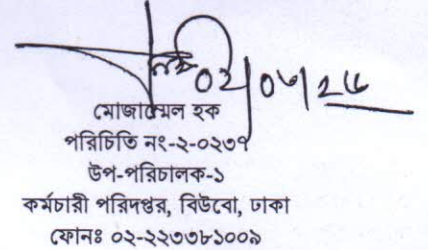 ০২/০৩/২৫
মোজাম্মেল হক
পরিচিতি নং-২-০২৩৭
উপ-পরিচালক-১
কর্মচারী পরিদপ্তর, বিউবো, ঢাকা
ফোনঃ ০২-২২৩৩৮১০০৯